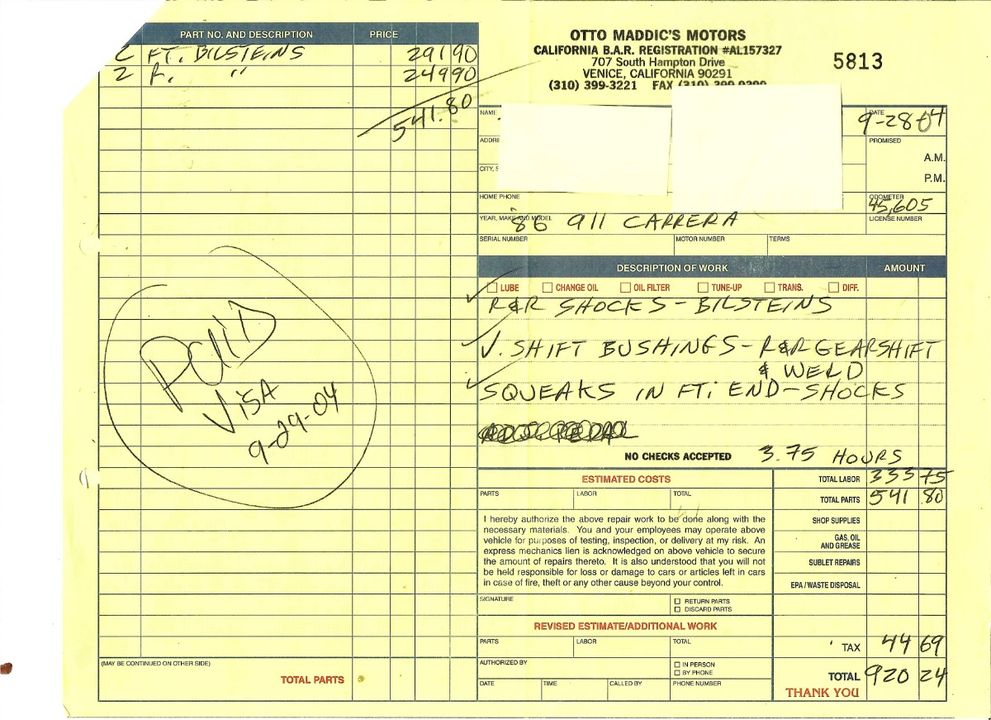 PART NO. AND DESCRIPTION PRICE
2 FT. BILSTEINS 291 90
2 R. " 249 90
541.80
OTTO MADDIC'S MOTORS
CALIFORNIA B.A.R. REGISTRATION #AL157327
707 South Hampton Drive
VENICE, CALIFORNIA 90291
(310) 399-3221 FAX (310) 399-9299
5813
NAME
DATE
9-28-04
ADDRE
PROMISED
A.M.
CITY, S
P.M.
HOME PHONE
ODOMETER
45,605
YEAR, MAKE AND MODEL
'86 911 CARRERA
LICENSE NUMBER
SERIAL NUMBER MOTOR NUMBER TERMS
DESCRIPTION OF WORK AMOUNT
LUBE CHANGE OIL OIL FILTER TUNE-UP TRANS. DIFF.
R&R SHOCKS - BILSTEINS
√. SHIFT BUSHINGS - R&R GEARSHIFT
& WELD
SQUEAKS IN FT. END - SHOCKS
NO CHECKS ACCEPTED 3.75 HOURS
PAID
VISA
9-29-04
ESTIMATED COSTS
PARTS LABOR TOTAL
I hereby authorize the above repair work to be done along with the
necessary materials. You and your employees may operate above
vehicle for purposes of testing, inspection, or delivery at my risk. An
express mechanics lien is acknowledged on above vehicle to secure
the amount of repairs thereto. It is also understood that you will not
be held responsible for loss or damage to cars or articles left in cars
in case of fire, theft or any other cause beyond your control.
SIGNATURE
RETURN PARTS
DISCARD PARTS
REVISED ESTIMATE/ADDITIONAL WORK
PARTS LABOR TOTAL
AUTHORIZED BY
IN PERSON
BY PHONE
DATE TIME CALLED BY PHONE NUMBER
TOTAL LABOR 333 75
TOTAL PARTS 541 80
SHOP SUPPLIES
GAS, OIL
AND GREASE
SUBLET REPAIRS
EPA / WASTE DISPOSAL
TAX 44 69
TOTAL 920 24
THANK YOU
(MAY BE CONTINUED ON OTHER SIDE)
TOTAL PARTS